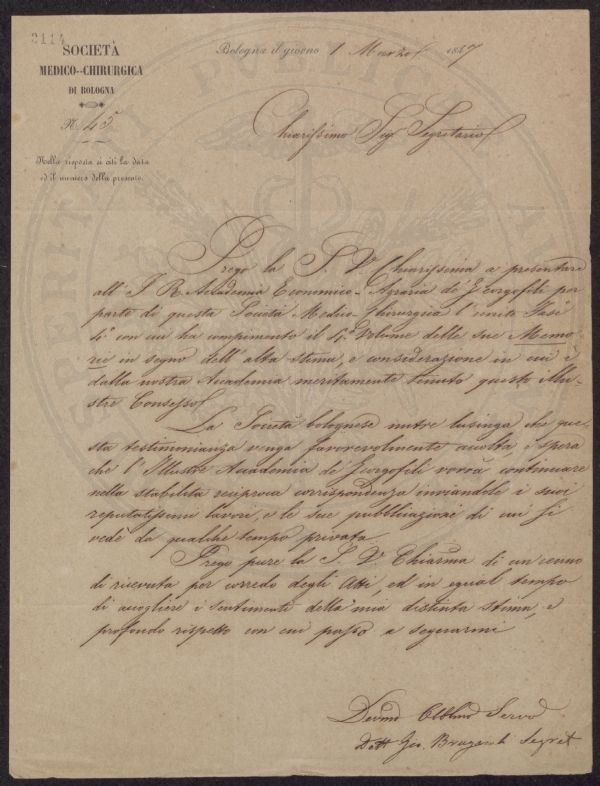 2114
SOCIETÀ
MEDICO-CHIRURGICA
DI BOLOGNA
N.° 45
Nella risposta si citi la data
ed il numero della presente.
Bologna il giorno 1 Marzo 1847
Chiarissimo Sigr Segretario
Prego la S. V. Chiarissima a presentare
all' I. R. Accademia Economico-Agraria de' Georgofili per
parte di questa Società Medico-Chirurgica l'unito Fasc
4° con cui ha compimento il 4.° Volume delle sue Memo
rie in segno dell'alta stima, e considerazione in cui è
dalla nostra Accademia meritamente tenuto questo illu-
stre Consesso.
La Società bolognese nutre lusinga che que
sta testimonianza venga favorevolmente accolta e spera
che l'Illustre Accademia de' Georgofili vorrà continuare
nella stabilita reciproca corrispondenza inviandole i suoi
reputatissimi lavori, e le sue pubblicazioni di cui si
vede da qualche tempo privata.
Prego pure la S. V. Chiarma di un cenno
di ricevuta per corredo degli Atti, ed in egual tempo
di accogliere i sentimenti della mia distinta stima, e
profondo rispetto con cui passo a segnarmi
Devmo Obblmo Servo
Dott. Gio. Brugnoli Segret
PUBLICA